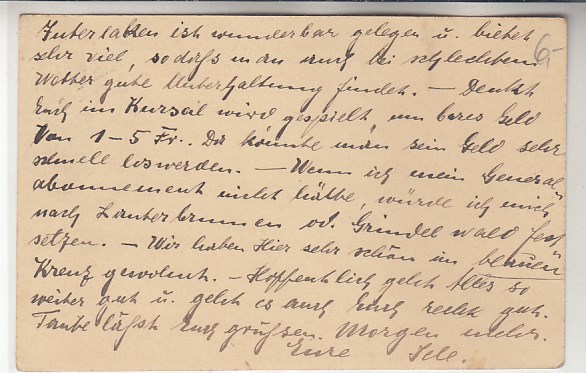 Interlaken ist wunderbar gelegen u. bietet
sehr viel, sodaß man auch bei schlechtem
Wetter gute Unterhaltung findet. — Denkt
Euch im Kursal wird gespielt, um bares Geld
von 1–5 Fr.. Da könnte man sein Geld sehr
schnell loswerden. — Wenn ich mein General-
abonnement nicht hätte, würde ich mich
nach Lauterbrunnen od. Grindelwald fest
setzen. — Wir haben hier sehr schön im blauen
Kreuz gewohnt. — Hoffentlich geht Alles so
weiter gut u. geht es auch Euch recht gut.
Taube läßt Euch grüßen. Morgen mehr.
Eure
6,-